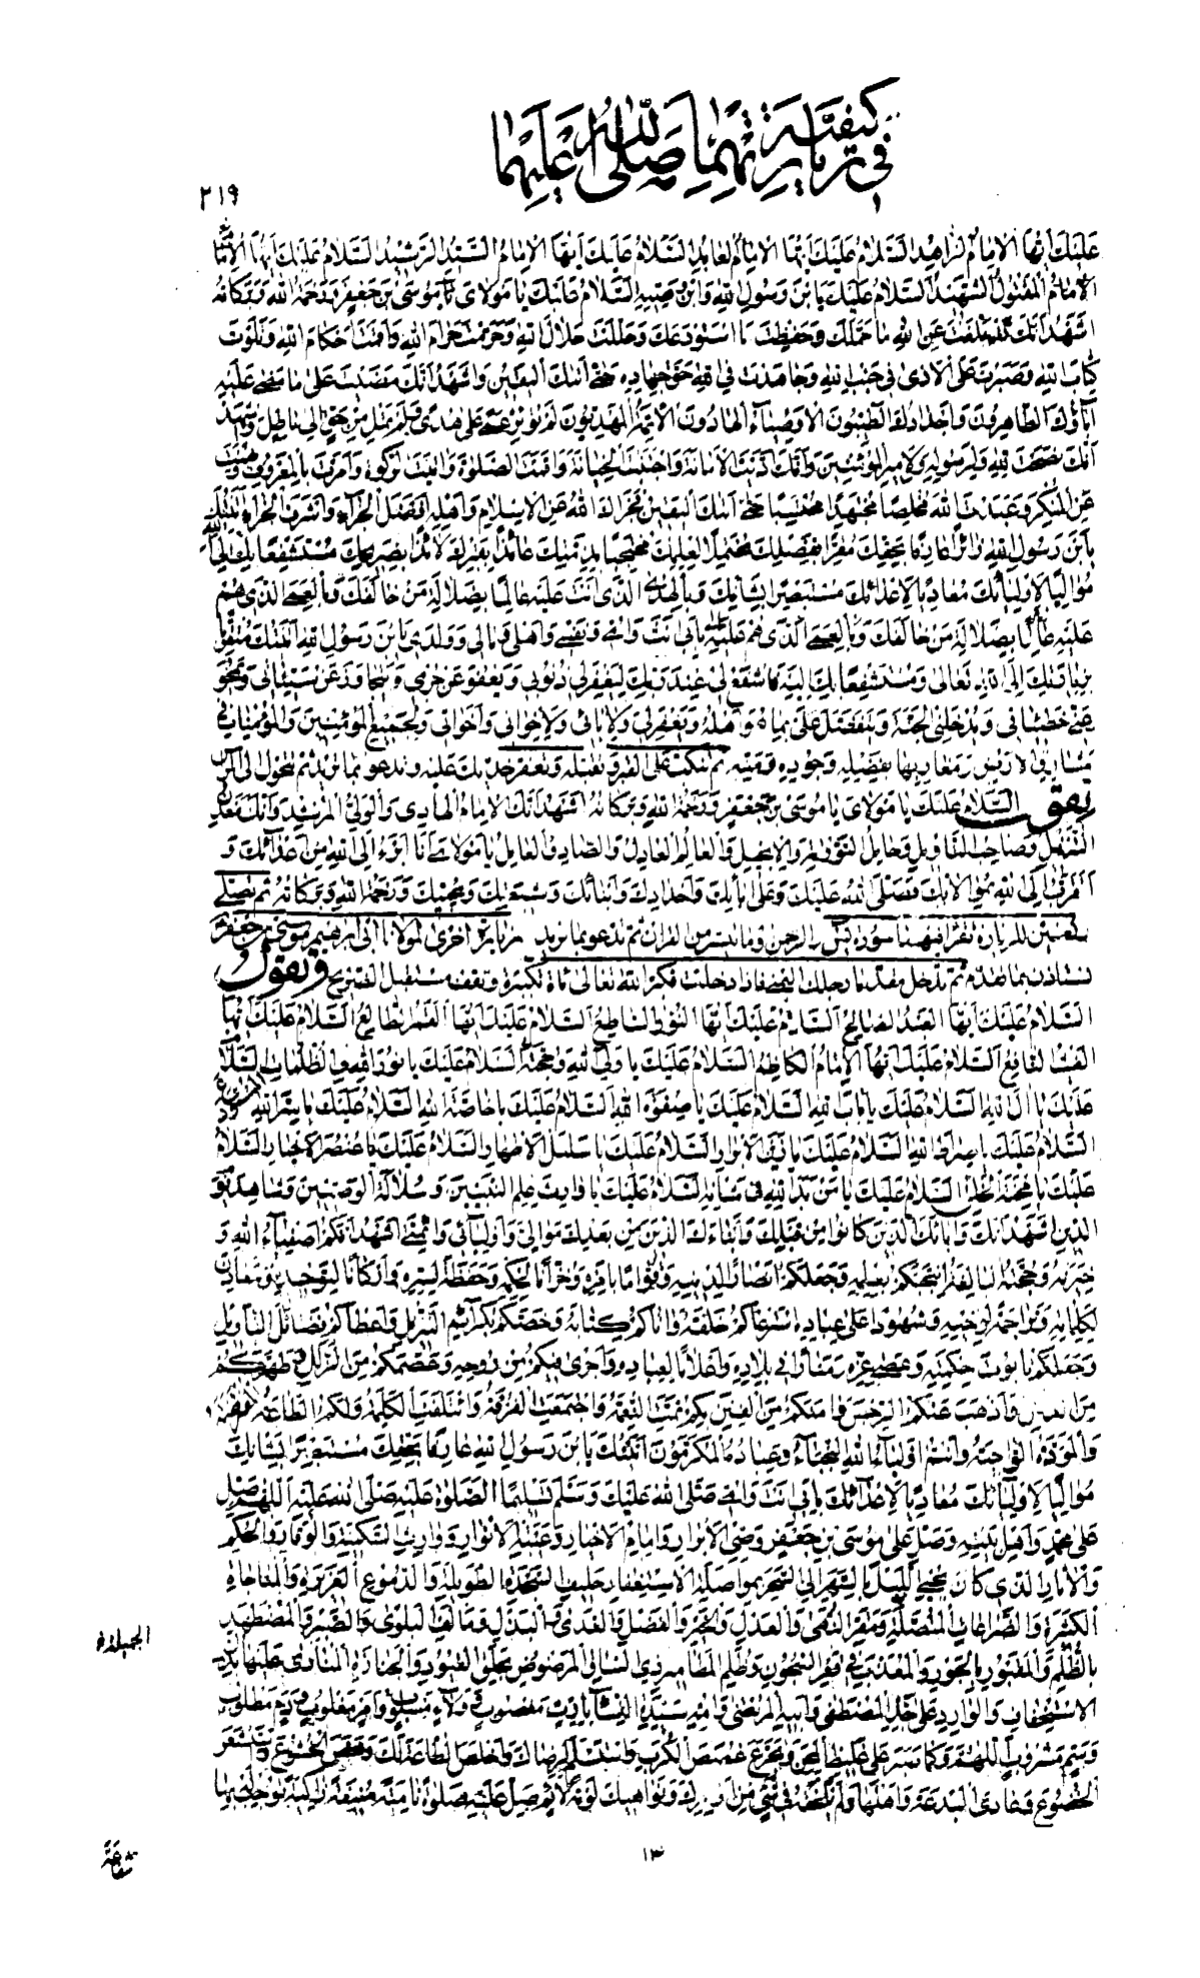 في كيفية زيارتهما صلى الله عليهما
٢١٩
عَلَيْكَ أَيُّهَا الْإِمَامُ الزَّاهِدُ السَّلَامُ عَلَيْكَ أَيُّهَا الْإِمَامُ الْعَابِدُ السَّلَامُ عَلَيْكَ أَيُّهَا الْإِمَامُ السَّيِّدُ الرَّشِيدُ السَّلَامُ عَلَيْكَ أَيُّهَا
الْإِمَامُ الْمَقْتُولُ الشَّهِيدُ السَّلَامُ عَلَيْكَ يَا بْنَ رَسُولِ اللهِ وَابْنَ وَصِيِّهِ السَّلَامُ عَلَيْكَ يَا مَوْلَايَ يَا مُوسَى بْنَ جَعْفَرٍ وَرَحْمَةُ اللهِ وَبَرَكَاتُهُ
أَشْهَدُ أَنَّكَ قَدْ بَلَّغْتَ عَنِ اللهِ مَا حَمَّلَكَ وَحَفِظْتَ مَا اسْتَوْدَعَكَ وَحَلَّلْتَ حَلَالَ اللهِ وَحَرَّمْتَ حَرَامَ اللهِ وَأَقَمْتَ أَحْكَامَ اللهِ وَتَلَوْتَ
كِتَابَ اللهِ وَصَبَرْتَ عَلَى الْأَذَى فِي جَنْبِ اللهِ وَجَاهَدْتَ فِي اللهِ حَقَّ جِهَادِهِ حَتَّى أَتَاكَ الْيَقِينُ وَأَشْهَدُ أَنَّكَ مَضَيْتَ عَلَى مَا مَضَى عَلَيْهِ
آبَاؤُكَ الطَّاهِرُونَ وَأَجْدَادُكَ الطَّيِّبُونَ الْأَوْصِيَاءُ الْهَادُونَ الْأَئِمَّةُ الْمَهْدِيُّونَ لَمْ تُؤْثِرْ عَمًى عَلَى هُدًى وَلَمْ تَمِلْ مِنْ حَقٍّ إِلَى بَاطِلٍ وَأَشْهَدُ
أَنَّكَ نَصَحْتَ لِلهِ وَلِرَسُولِهِ وَلِأَمِيرِ الْمُؤْمِنِينَ وَأَنَّكَ أَدَّيْتَ الْأَمَانَةَ وَاجْتَنَبْتَ الْخِيَانَةَ وَأَقَمْتَ الصَّلَوةَ وَآتَيْتَ الزَّكَوةَ وَأَمَرْتَ بِالْمَعْرُوفِ وَنَهَيْتَ
عَنِ الْمُنْكَرِ وَعَبَدْتَ اللهَ مُخْلِصًا مُجْتَهِدًا مُحْتَسِبًا حَتَّى أَتَاكَ الْيَقِينُ فَجَزَاكَ اللهُ عَنِ الْإِسْلَامِ وَأَهْلِهِ أَفْضَلَ الْجَزَاءِ وَأَشْرَفَ الْجَزَاءِ أَتَيْتُكَ
يَا بْنَ رَسُولِ اللهِ زَائِرًا عَارِفًا بِحَقِّكَ مُقِرًّا بِفَضْلِكَ مُحْتَمِلًا لِعِلْمِكَ مُحْتَجِبًا بِذِمَّتِكَ عَائِذًا بِقَبْرِكَ لَائِذًا بِضَرِيحِكَ مُسْتَشْفِعًا بِكَ إِلَى اللهِ
مُوَالِيًا لِأَوْلِيَائِكَ مُعَادِيًا لِأَعْدَائِكَ مُسْتَبْصِرًا بِشَأْنِكَ وَبِالْهُدَى الَّذِي أَنْتَ عَلَيْهِ عَالِمًا بِضَلَالَةِ مَنْ خَالَفَكَ وَبِالْعَمَى الَّذِي هُمْ
عَلَيْهِ عَالِمًا بِضَلَالَةِ مَنْ خَالَفَكَ وَبِالْعَمَى الَّذِي هُمْ عَلَيْهِ بِأَبِي أَنْتَ وَأُمِّي وَنَفْسِي وَأَهْلِي وَمَالِي وَوَلَدِي يَا بْنَ رَسُولِ اللهِ أَتَيْتُكَ مُتَقَرِّبًا
بِزِيَارَتِكَ إِلَى اللهِ تَعَالَى وَمُسْتَشْفِعًا بِكَ إِلَيْهِ فَاشْفَعْ لِي عِنْدَ رَبِّكَ لِيَغْفِرَ لِي ذُنُوبِي وَيَعْفُوَ عَنْ جُرْمِي وَيَتَجَاوَزَ عَنْ سَيِّئَاتِي وَيَمْحُوَ
عَنِّي خَطِيئَاتِي وَيُدْخِلَنِي الْجَنَّةَ وَيَتَفَضَّلَ عَلَيَّ بِمَا هُوَ أَهْلُهُ وَيَغْفِرَ لِي وَلِآبَائِي وَلِإِخْوَانِي وَأَخَوَاتِي وَلِجَمِيعِ الْمُؤْمِنِينَ وَالْمُؤْمِنَاتِ فِي
مَشَارِقِ الْأَرْضِ وَمَغَارِبِهَا بِفَضْلِهِ وَجُودِهِ وَمَنِّهِ ثم تنكب على القبر وتقبله وتعفر خديك عليه وتدعو بما تريد ثم تتحول الى الرأس
وتقول السَّلَامُ عَلَيْكَ يَا مَوْلَايَ يَا مُوسَى بْنَ جَعْفَرٍ وَرَحْمَةُ اللهِ وَبَرَكَاتُهُ أَشْهَدُ أَنَّكَ الْإِمَامُ الْهَادِي وَالْوَلِيُّ الْمُرْشِدُ وَأَنَّكَ مَعْدِنُ
التَّنْزِيلِ وَصَاحِبُ التَّأْوِيلِ وَحَامِلُ التَّوْرَيةِ وَالْإِنْجِيلِ وَالْعَالِمُ الْعَادِلُ وَالصَّادِقُ الْعَامِلُ يَا مَوْلَايَ أَنَا أَبْرَءُ إِلَى اللهِ مِنْ أَعْدَائِكَ وَ
أَتَقَرَّبُ إِلَى اللهِ بِمُوَالَاتِكَ فَصَلَّى اللهُ عَلَيْكَ وَعَلَى آبَائِكَ وَأَجْدَادِكَ وَأَبْنَائِكَ وَشِيعَتِكَ وَمُحِبِّيكَ وَرَحْمَةُ اللهِ وَبَرَكَاتُهُ ثم تصلي
ركعتين للزيارة تقرأ فيهما سورة يس والرحمن وما تيسر من القرآن ثم تدعو بما تريد زيارة اخرى لمولانا ابي ابراهيم موسى بن جعفر
تستأذن بما تقدم ثم تدخل مقدما رجلك اليمنى فاذا دخلت فكبر الله تعالى مائة تكبيرة وتقف مستقبل الضريح وتقول
السَّلَامُ عَلَيْكَ أَيُّهَا الْعَبْدُ الصَّالِحُ السَّلَامُ عَلَيْكَ أَيُّهَا النُّورُ السَّاطِعُ السَّلَامُ عَلَيْكَ أَيُّهَا الْقَمَرُ الطَّالِعُ السَّلَامُ عَلَيْكَ أَيُّهَا
الْغَيْثُ النَّافِعُ السَّلَامُ عَلَيْكَ أَيُّهَا الْإِمَامُ الْكَاظِمُ السَّلَامُ عَلَيْكَ يَا وَلِيَّ اللهِ وَحُجَّتَهُ السَّلَامُ عَلَيْكَ يَا نُورَ اللهِ فِي الظُّلُمَاتِ السَّلَامُ
عَلَيْكَ يَا آلَ اللهِ السَّلَامُ عَلَيْكَ يَا بَابَ اللهِ السَّلَامُ عَلَيْكَ يَا صِفْوَةَ اللهِ السَّلَامُ عَلَيْكَ يَا خَاصَّةَ اللهِ السَّلَامُ عَلَيْكَ يَا سِرَّ اللهِ الْمُسْتَوْدَعَ
السَّلَامُ عَلَيْكَ يَا صِرَاطَ اللهِ السَّلَامُ عَلَيْكَ يَا زَيْنَ الْأَبْرَارِ السَّلَامُ عَلَيْكَ يَا سَلِيلَ الْأَطْهَارِ السَّلَامُ عَلَيْكَ يَا عُنْصُرَ الْأَخْيَارِ السَّلَامُ
عَلَيْكَ يَا مِحْنَةَ الْخَلْقِ السَّلَامُ عَلَيْكَ يَا مَنْ بَدَا لِلهِ فِي شَأْنِهِ السَّلَامُ عَلَيْكَ يَا وَارِثَ عِلْمِ النَّبِيِّينَ وَسُلَالَةَ الْوَصِيِّينَ وَشَاهِدَ يَوْمِ
الدِّينِ أَشْهَدُ أَنَّكَ وَآبَائَكَ الَّذِينَ كَانُوا مِنْ قَبْلِكَ وَأَبْنَاءَكَ الَّذِينَ مِنْ بَعْدِكَ مَوَالِيَّ وَأَوْلِيَائِي وَأَئِمَّتِي أَشْهَدُ أَنَّكُمْ أَصْفِيَاءُ اللهِ وَ
خِيَرَتُهُ وَحُجَّتُهُ الْبَالِغَةُ انْتَجَبَكُمْ بِعِلْمِهِ وَجَعَلَكُمْ أَنْصَارًا لِدِينِهِ وَقُوَّامًا بِأَمْرِهِ وَخُزَّانًا لِحُكْمِهِ وَحَفَظَةً لِسِرِّهِ وَأَرْكَانًا لِتَوْحِيدِهِ وَمَعَادِنَ
لِكَلِمَاتِهِ وَتَرَاجِمَةً لِوَحْيِهِ وَشُهُودًا عَلَى عِبَادِهِ اسْتَرْعَاكُمْ خَلْقَهُ وَآتَاكُمْ كِتَابَهُ وَخَصَّكُمْ بِكَرَائِمِ التَّنْزِيلِ وَأَعْطَاكُمْ فَضَائِلَ التَّأْوِيلِ
وَجَعَلَكُمْ تَابُوتَ حِكْمَتِهِ وَعَصَى عِزِّهِ وَمَنَارًا فِي بِلَادِهِ وَأَعْلَامًا لِعِبَادِهِ وَأَجْرَى فِيكُمْ مِنْ رُوحِهِ وَعَصَمَكُمْ مِنَ الزَّلَلِ وَطَهَّرَكُمْ
مِنَ الدَّنَسِ وَأَذْهَبَ عَنْكُمُ الرِّجْسَ وَآمَنَكُمْ مِنَ الْفِتَنِ بِكُمْ تَمَّتِ النِّعْمَةُ وَاجْتَمَعَتِ الْفُرْقَةُ وَائْتَلَفَتِ الْكَلِمَةُ وَلَكُمُ الطَّاعَةُ الْمُفْتَرَضَةُ
وَالْمَوَدَّةُ الْوَاجِبَةُ وَأَنْتُمْ أَوْلِيَاءُ اللهِ النُّجَبَاءُ وَعِبَادُهُ الْمُكْرَمُونَ أَتَيْتُكَ يَا بْنَ رَسُولِ اللهِ عَارِفًا بِحَقِّكَ مُسْتَبْصِرًا بِشَأْنِكَ
مُوَالِيًا لِأَوْلِيَائِكَ مُعَادِيًا لِأَعْدَائِكَ بِأَبِي أَنْتَ وَأُمِّي صَلَّى اللهُ عَلَيْكَ وَسَلَّمَ تَسْلِيمًا الصَّلَوةُ عَلَيْهِ صَلَّى اللهُ عَلَيْهِ اَللّٰهُمَّ صَلِّ
عَلَى مُحَمَّدٍ وَأَهْلِ بَيْتِهِ وَصَلِّ عَلَى مُوسَى بْنِ جَعْفَرٍ وَصِيِّ الْأَبْرَارِ وَإِمَامِ الْأَخْيَارِ وَعَيْبَةِ الْأَنْوَارِ وَوَارِثِ السَّكِينَةِ وَالْوَقَارِ وَالْحِكَمِ
وَالْآثَارِ الَّذِي كَانَ يُحْيِي اللَّيْلَ بِالسَّهَرِ إِلَى السَّحَرِ بِمُوَاصَلَةِ الْاسْتِغْفَارِ حَلِيفِ السَّجْدَةِ الطَّوِيلَةِ وَالدُّمُوعِ الْغَزِيرَةِ وَالْمُنَاجَاةِ
الْكَثِيرَةِ وَالضَّرَاعَاتِ الْمُتَّصِلَةِ وَمَقَرِّ النُّهَى وَالْعَدْلِ وَالْخَيْرِ وَالْفَضْلِ وَالنَّدَى وَالْبَذْلِ وَمَأْلَفِ الْبَلْوَى وَالصَّبْرِ وَالْمُضْطَهَدِ
بِالظُّلْمِ وَالْمَقْبُورِ بِالْجَوْرِ وَالْمُعَذَّبِ فِي قَعْرِ السُّجُونِ وَظُلَمِ الْمَطَامِيرِ ذِي السَّاقِ الْمَرْضُوضِ بِحَلَقِ الْقُيُودِ وَالْجَنَازَةِ الْمُنَادَى عَلَيْهَا بِذُلِّ
الْاسْتِخْفَافِ وَالْوَارِدِ عَلَى جَدِّهِ الْمُصْطَفَى وَأَبِيهِ الْمُرْتَضَى وَأُمِّهِ سَيِّدَةِ النِّسَاءِ بِإِرْثٍ مَغْصُوبٍ وَوَلَاءٍ مَسْلُوبٍ وَأَمْرٍ مَغْلُوبٍ وَدَمٍ مَطْلُوبٍ
وَسَمٍّ مَشْرُوبٍ اَللّٰهُمَّ وَكَمَا صَبَرَ عَلَى غَلِيظِ الْمِحَنِ وَتَجَرَّعَ غُصَصَ الْكُرَبِ وَاسْتَسْلَمَ لِرِضَاكَ وَأَخْلَصَ الطَّاعَةَ لَكَ وَمَحَضَ الْخُشُوعَ وَاسْتَشْعَرَ
الْخُضُوعَ وَعَادَى الْبِدْعَةَ وَأَهْلَهَا وَلَمْ يَلْحَقْهُ فِي شَيْءٍ مِنْ أَوَامِرِكَ وَنَوَاهِيكَ لَوْمَةُ لَائِمٍ صَلِّ عَلَيْهِ صَلَوةً نَامِيَةً مُنِيفَةً زَاكِيَةً تُوجِبُ لَهُ بِهَا
شفاعة
١٣